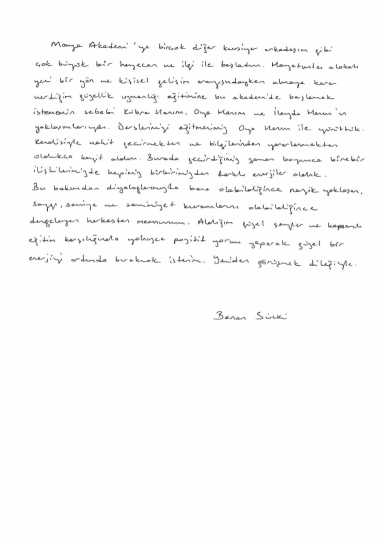 Maya Akademi'ye birçok diğer kursiyer arkadaşım gibi
çok büyük bir heyecan ve ilgi ile başladım. Hayatımla alakalı
yeni bir yön ve kişisel gelişim arayışındayken almaya karar
verdiğim güzellik uzmanlığı eğitimine bu akademi'de başlamak
istememin sebebi Kübra Hanım, Oya Hanım ve İlayda Hanım'ın
yaklaşımlarıydı. Derslerimizi eğitmenimiz Oya Hanım ile yürüttük.
Kendisiyle vakit geçirmekten ve bilgilerinden yararlanmaktan
oldukça keyif aldım. Burada geçirdiğimiz zaman boyunca birebir
ilişkilerimizde hepimiz birbirimizden farklı enerjiler aldık.
Bu bakımdan diyaloglarımızda bana olabildiğince nazik yaklaşan,
saygı, seviye ve samimiyet kavramlarını olabildiğince
dengeleyen herkesten memnunum. Aldığım güzel şeyler ve kapsamlı
eğitim karşılığında yalnızca pozitif yorum yaparak güzel bir
enerjiyi ardımda bırakmak isterim. Yeniden görüşmek dileğiyle.
Banan